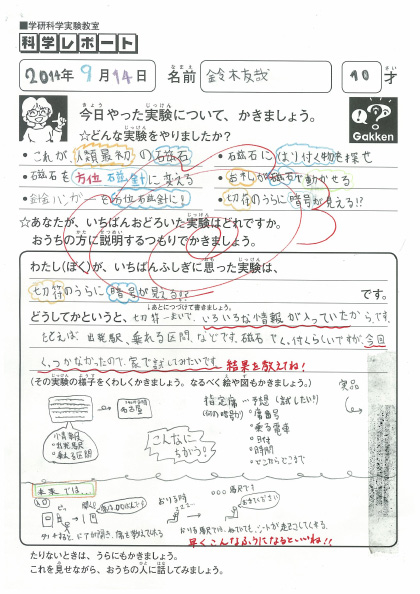 ■学研科学実験教室
科学レポート
2014年 9月14日
なまえ
名前 鈴木友哉
さい
10才
きょう じっけん
今日やった実験について、かきましょう。
☆どんな実験をやりましたか?
Gakken
・これが人類最初の磁石
・磁石にはり付く物を探せ
・磁石を方位磁針に変える
・お札が磁石で動かせる
・針金ハンガーを方位磁針に!
・切符のうらに暗号が見える!?
☆あなたが、いちばんおどろいた実験はどれですか。
おうちの方に説明するつもりでかきましょう。
わたし(ぼく)が、いちばんふしぎに思った実験は、
切符のうらに暗号が見える!? です。
↓あとにつづけて書きましょう。
どうしてかというと、切符一まいで、いろいろな情報が入っていたからです。
たとえば、出発駅、乗れる区間、などです。磁石でく、付くらしいですが、今回
く、つかなかったので、家で試してみたいです。 結果を教えてね!
(その実験の様子をくわしくかきましょう。なるべく絵や図もかきましょう。)
実品
名古屋
指定席…予想(試したい!)
・席番号
・乗る電車
・日付
・時間
・どこからどこまで
・出発駅
・乗れる区間
こんなにちがう!
未来では…
おりる時
早くこんなふうになるといいね!!
たりないときは、うらにもかきましょう。
これを見せながら、おうちの人に話してみましょう。